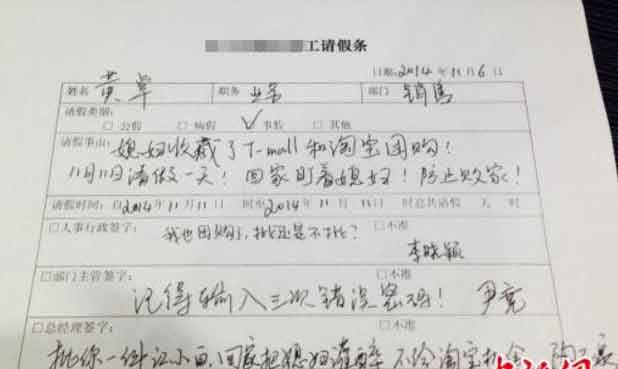 工请假条
日期:2014年11月6日
姓名 黄草 职务 业务 部门 销售
请假类别:
□公假 □病假 √事假 □其他
请假事由:媳妇收藏了T-mall和淘宝团购!
11月11日请假一天!回家盯着媳妇!防止败家!
请假时间:自2014年11月11日 时至2014年11月11日 时总共请假 天 时
□人事行政签字: □不准
我也团购了,批还是不批?
李晓颖
□部门主管签字: □不准
记得输入三次错误密码!尹亮
□总经理签字: □不准
批你一件江小白,回家把媳妇灌醉 不给淘宝